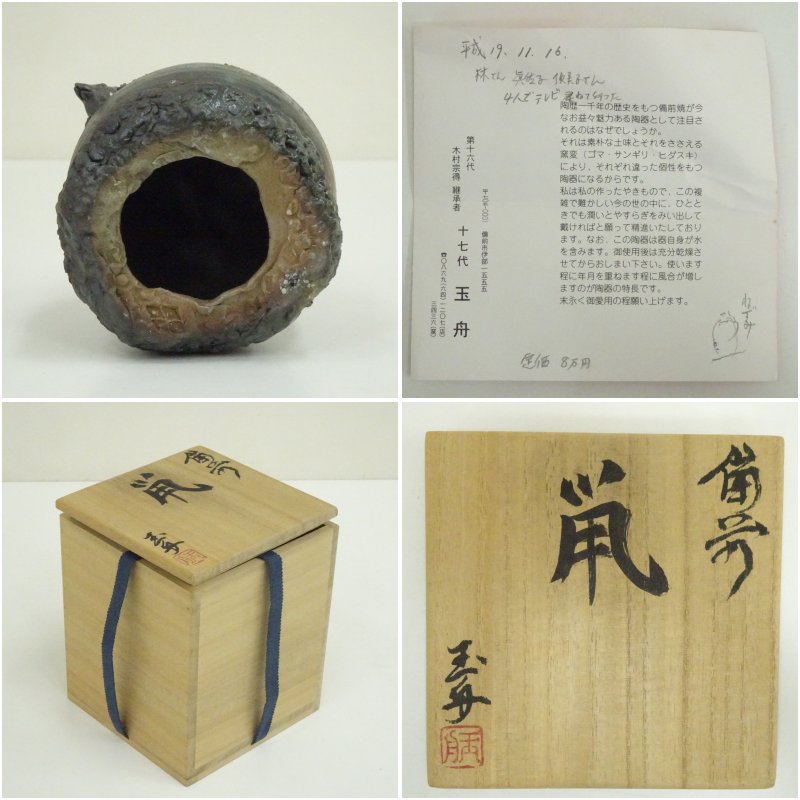 平成19.11.16.
林さん 眞佐子
4人でテレビ
陶歴一千年の歴史をもつ備前焼が今
なお益々魅力ある陶器として注目さ
れるのはなぜでしょうか。
それは素朴な土味とそれをささえる
窯変（ゴマ・サンギリ・ヒダスキ）
により、それぞれ違った個性をもつ
陶器になるからです。
私は私の作ったやきもので、この複
雑で難かしい今の世の中に、ひとと
きでも潤いとやすらぎをみい出して
戴ければと願って精進いたしており
ます。なお、この陶器は器自身が水
を含みます。御使用後は充分乾燥さ
せてからおしまい下さい。使います
程に年月を重ねます程に風合が増し
ますのが陶器の特長です。
末永く御愛用の程願い上げます。
第十六代
木村宗得 継承者
十七代 玉舟
備前市伊部一五五五
ねずみ
定価 8万円
備前
鼠
玉舟
備前
鼠
玉舟